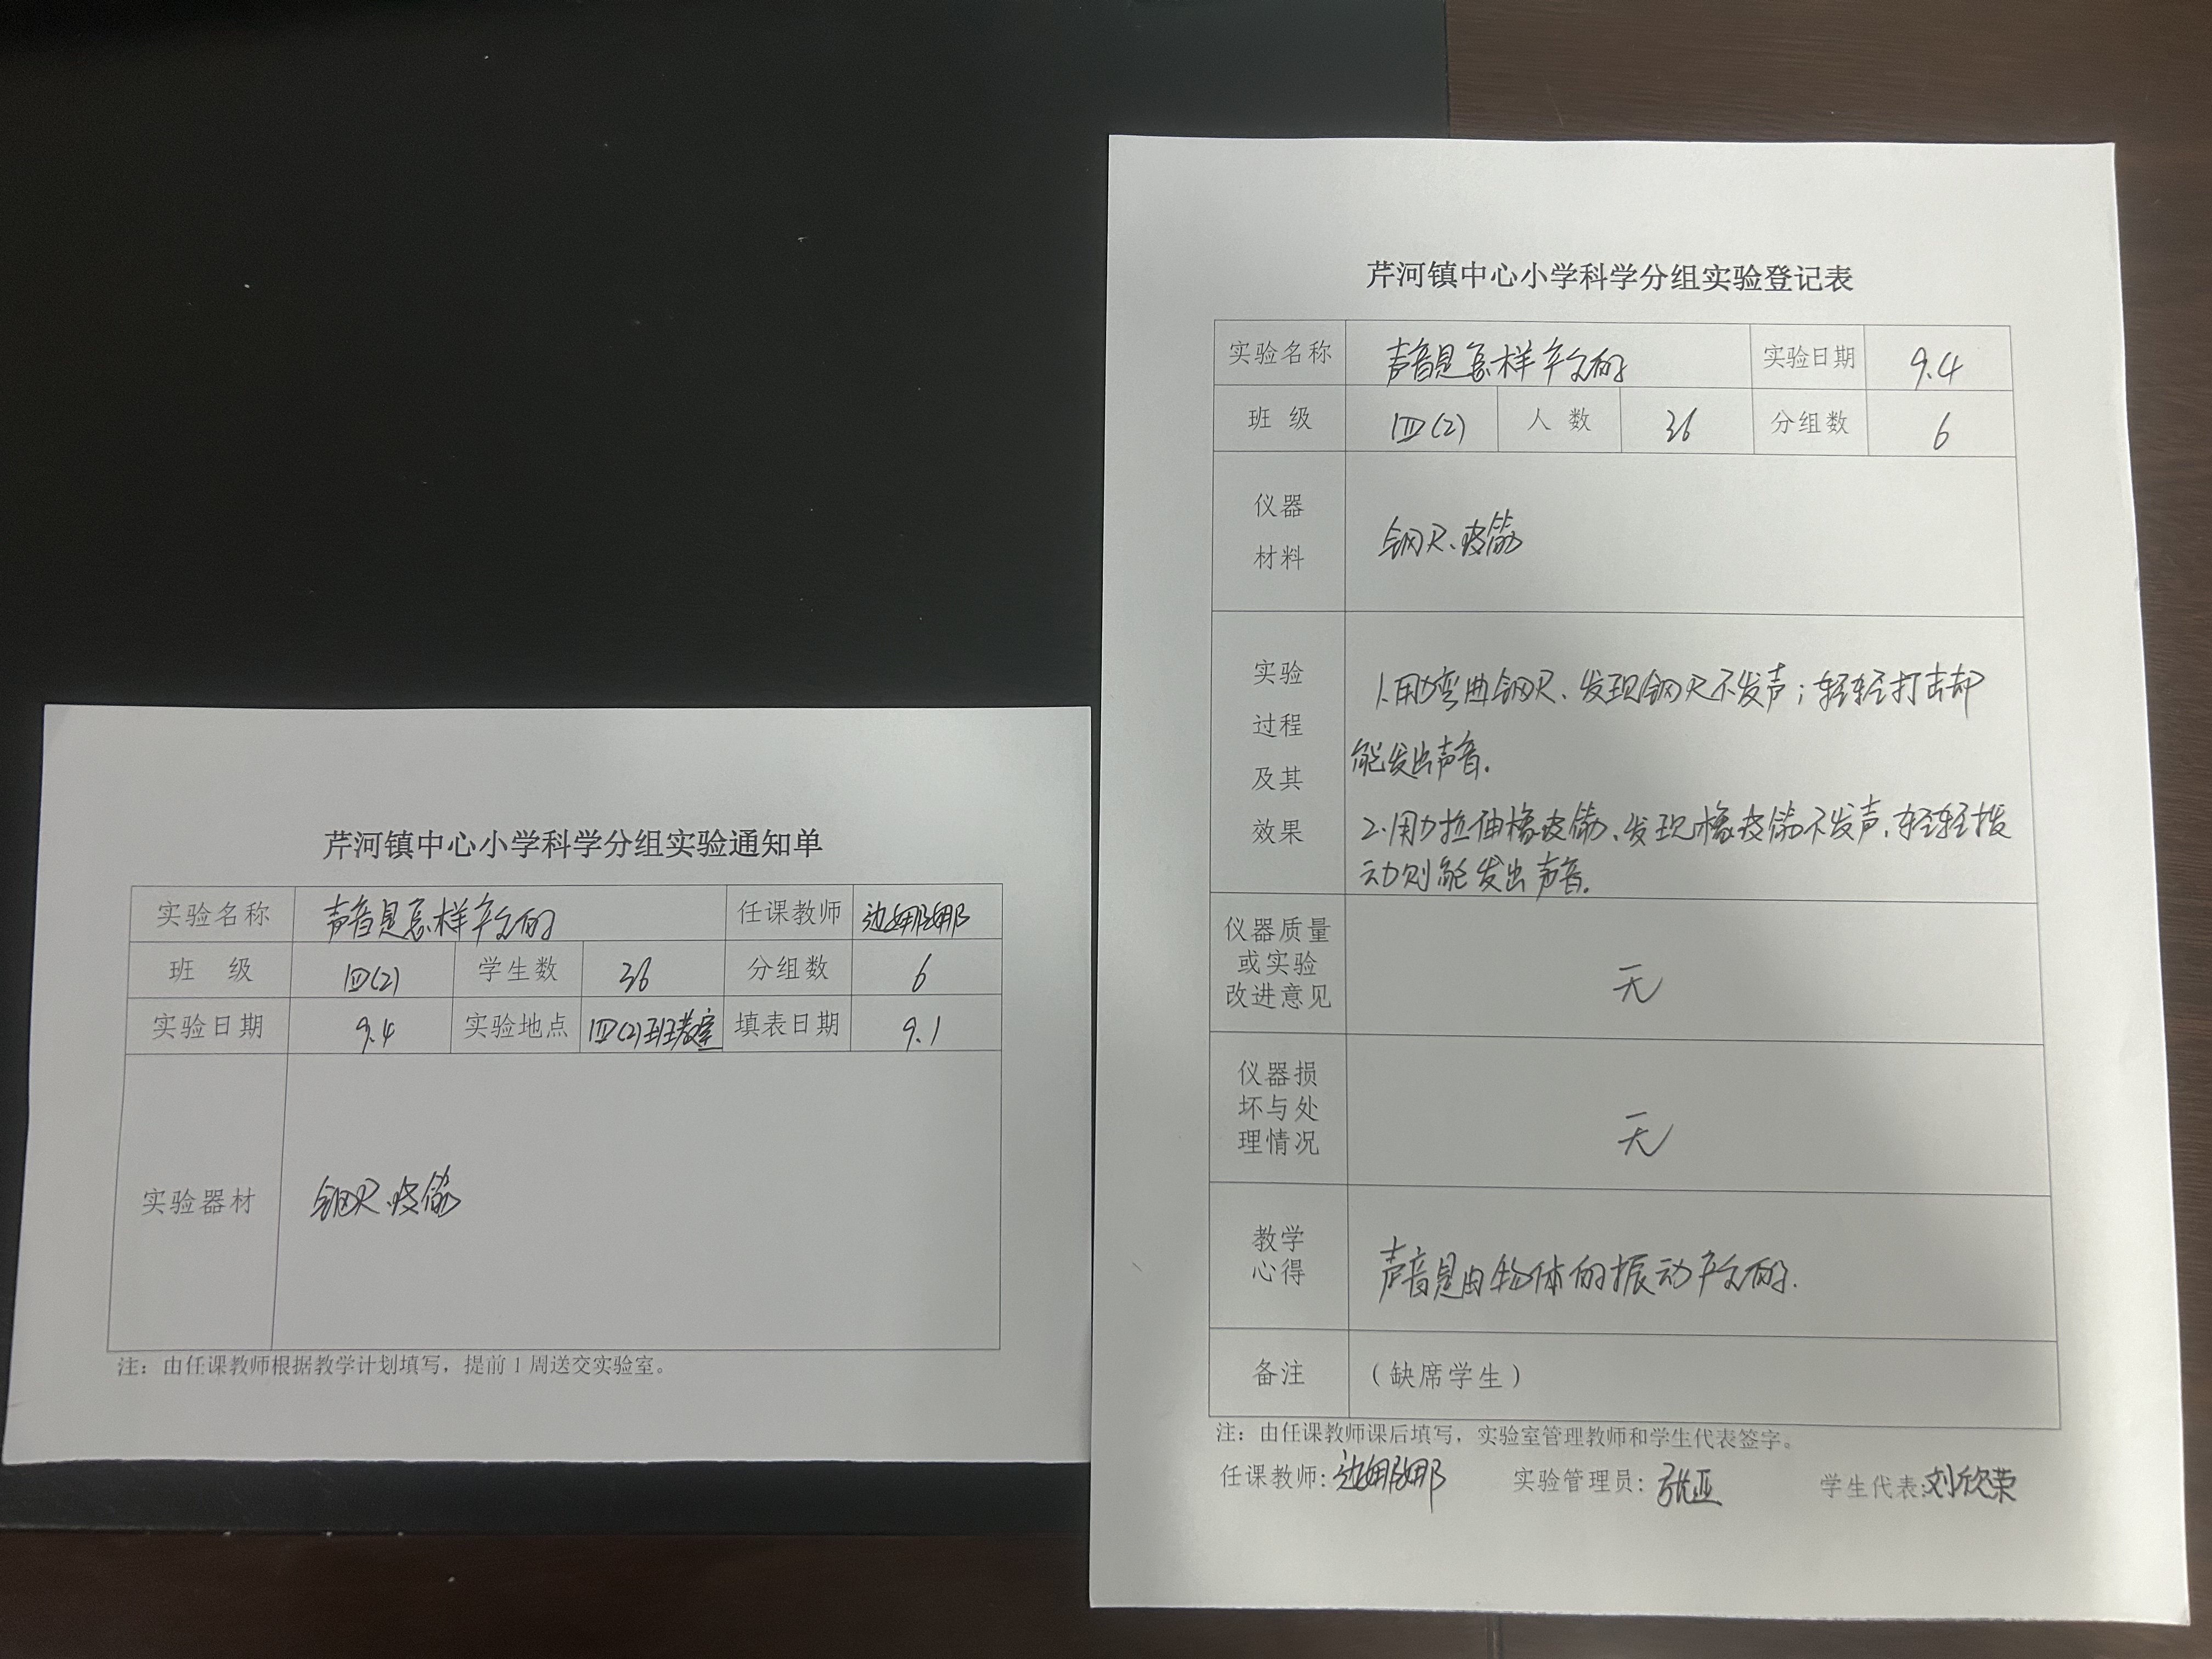 芹河镇中心小学科学分组实验通知单
实验名称 声音是怎样产生的 任课教师 边娜娜
班 级 四(2) 学生数 36 分组数 6
实验日期 9.4 实验地点 四(2)班教室 填表日期 9.1
实验器材 钢尺、皮筋
注：由任课教师根据教学计划填写，提前1周送交实验室。
芹河镇中心小学科学分组实验登记表
实验名称 声音是怎样产生的 实验日期 9.4
班 级 四(2) 人 数 36 分组数 6
仪器
材料
钢尺、皮筋
实验
过程
及其
效果
1.用力弯曲钢尺、发现钢尺不发声；轻轻打击却
能发出声音.
2.用力拉伸橡皮筋、发现橡皮筋不发声.轻轻拨
动则能发出声音.
仪器质量
或实验
改进意见
无
仪器损
坏与处
理情况
无
教学
心得
声音是由物体的振动产生的.
备注 （缺席学生）
注：由任课教师课后填写，实验室管理教师和学生代表签字。
任课教师: 边娜娜 实验管理员: 张亚 学生代表: 刘欣荣